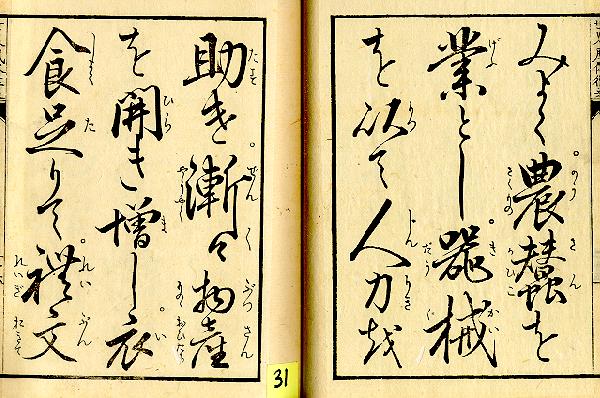 みよく農蠶を
業とし器械
を以て人力を
助け漸々物産
を開き増し衣
食足りて禮文
31